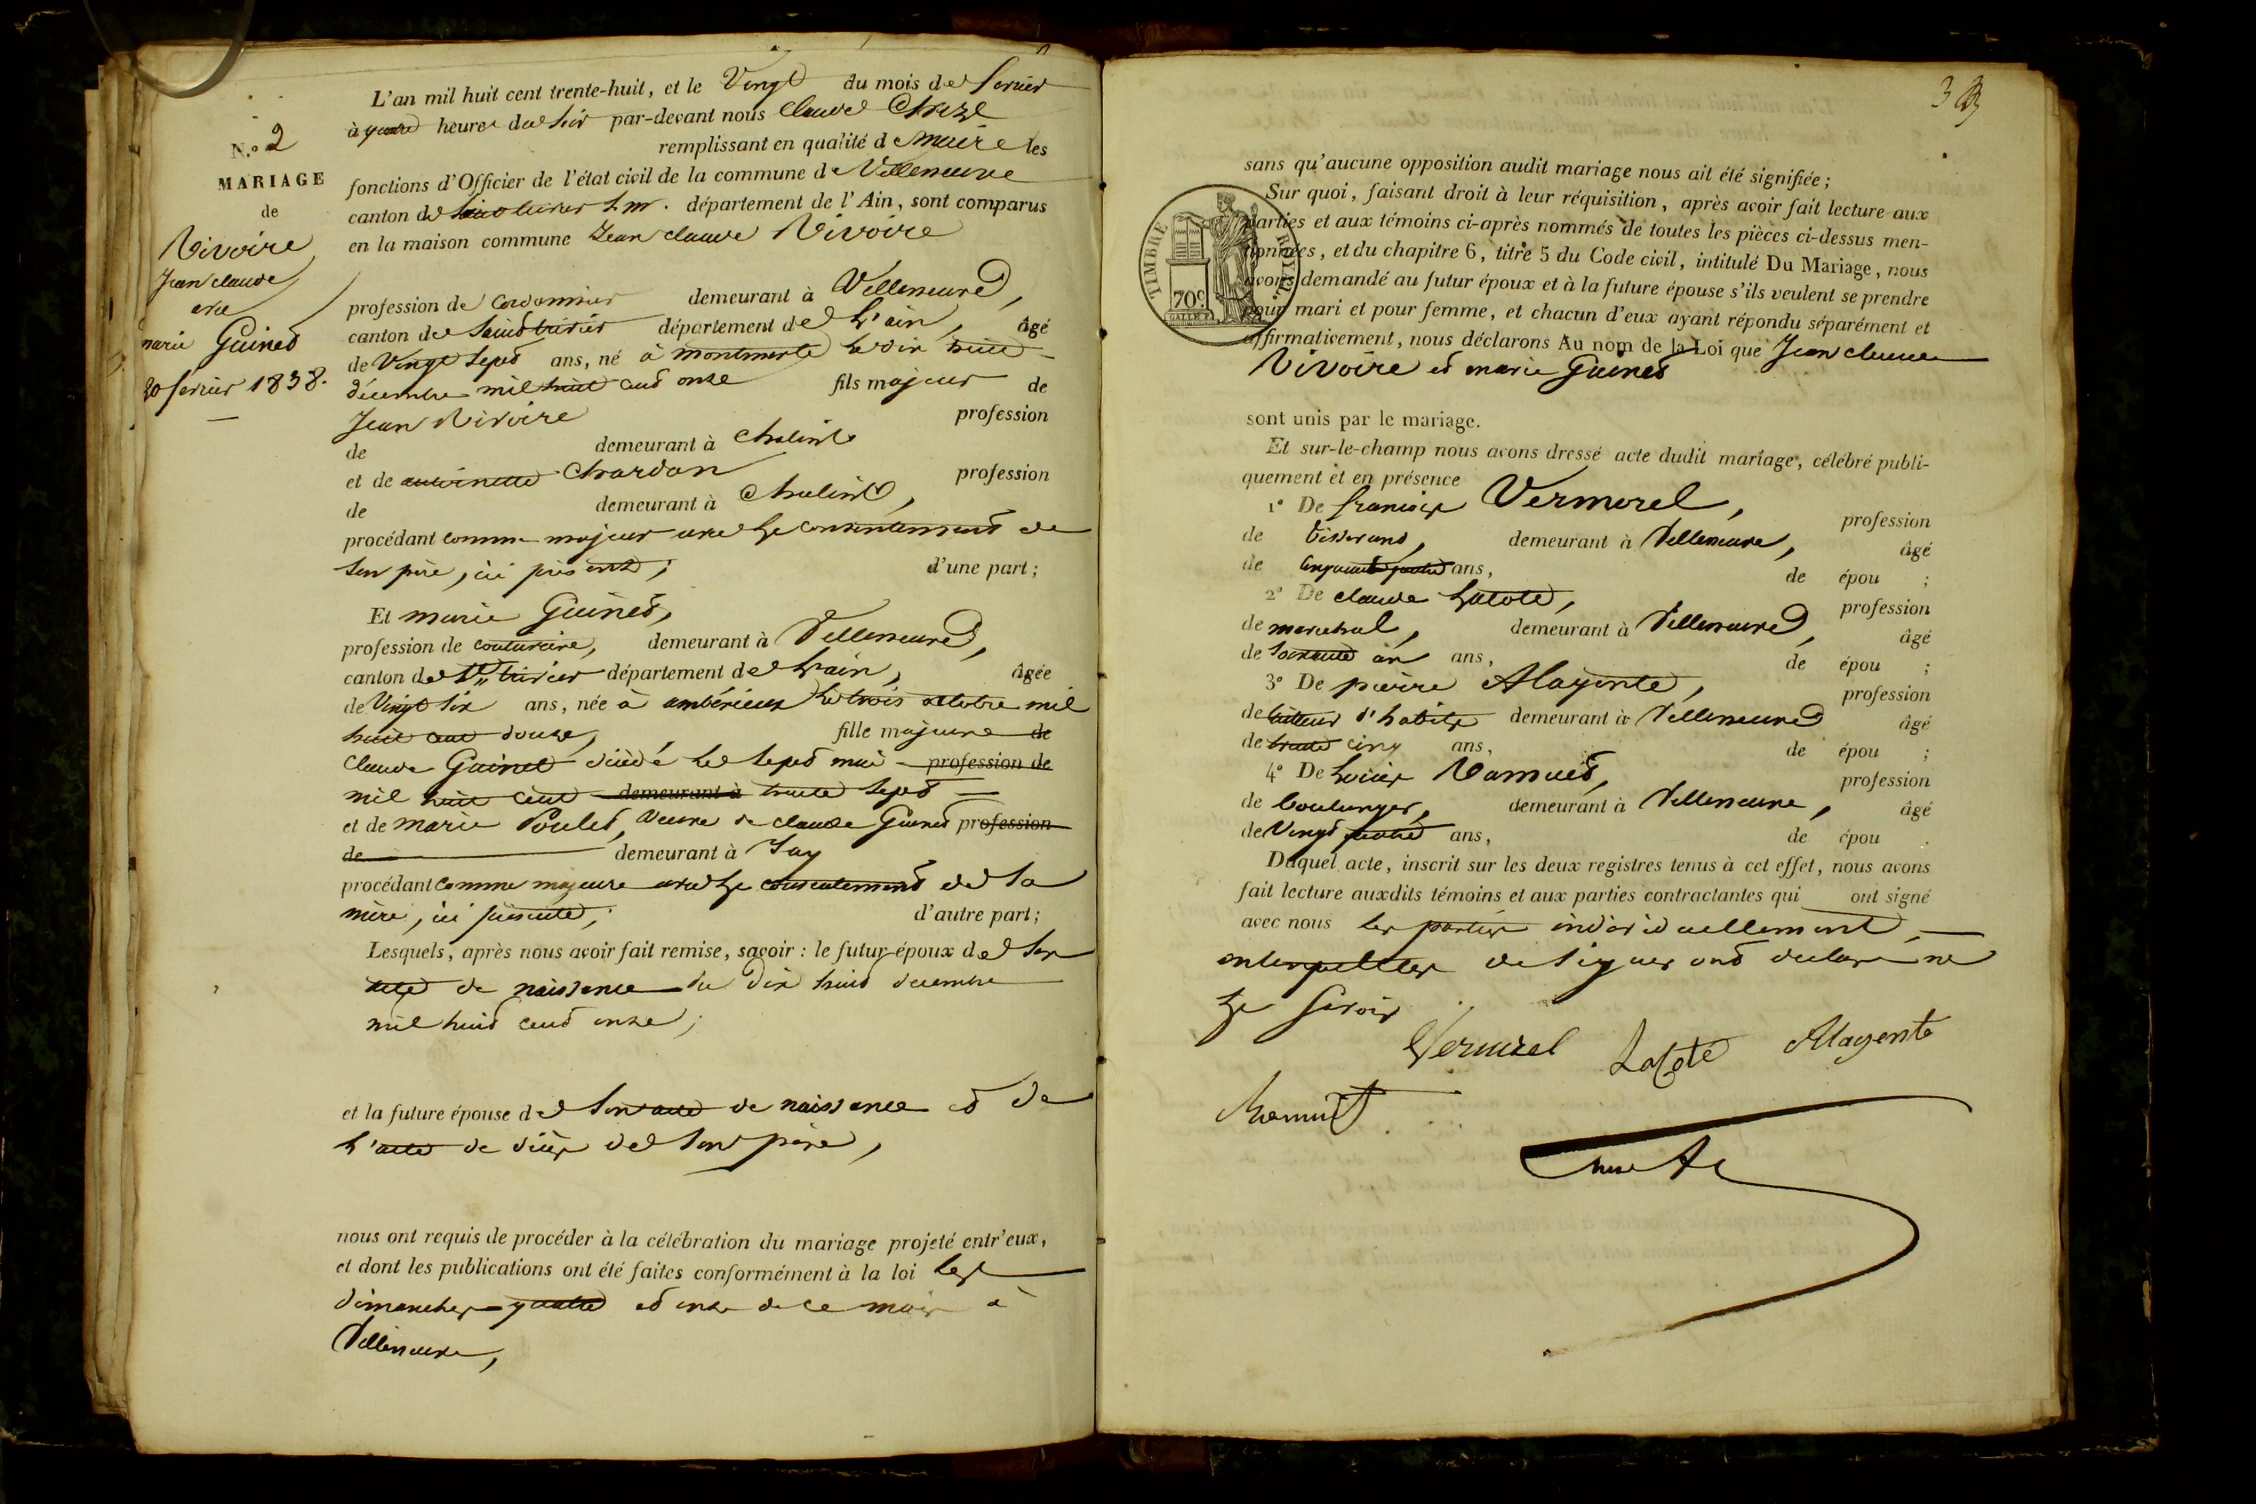 N.o 2
MARIAGE
de
Rivoire
Jean claude
et
marie Guinet
20 fevrier 1838.
L'an mil huit cent trente-huit, et le Vingt du mois de fevrier
à quatre heures du soir par-devant nous Claude
remplissant en qualité de maire les
fonctions d'Officier de l'état civil de la commune de Villeneuve
canton de Saint trivier s. m. département de l'Ain, sont comparus
en la maison commune Jean claude Rivoire
profession de cordonnier demeurant à Villeneuve,
canton de Saint trivier département de L'ain, âgé
de Vingt Sept ans, né à montmerle Le dix huit
décembre mil huit cent onze fils majeur de
Jean Rivoire profession
de demeurant à
et de antoinette Chardon profession
de demeurant à
procédant comme majeur avec Le consentement de
Son père, ici présent; d'une part;
Et marie Guinet,
profession de couturière, demeurant à Villeneuve,
canton de St trivier département de L'ain, âgée
de Vingt Six ans, née à ambérieux Le trois octobre mil
huit cent douze, fille majeure de
Claude Guinet décédé Le Sept mai profession de
mil huit cent demeurant à trente Sept
et de marie Poulet, Veuve de claude Guinet profession
de demeurant à
procédant comme majeure avec Le consentement de Sa
mère, ici présente; d'autre part;
Lesquels, après nous avoir fait remise, savoir : le futur époux de Son
acte de naissance du Dix huit decembre
mil huit cent onze;
et la future épouse de Son acte de naissance et de
L'acte de décès de Son père,
nous ont requis de procéder à la célébration du mariage projeté entr'eux,
et dont les publications ont été faites conformément à la loi Les
dimanches quatre et onze de ce mois à
Villeneuve,
3
sans qu'aucune opposition audit mariage nous ait été signifiée;
Sur quoi, faisant droit à leur réquisition, après avoir fait lecture aux
parties et aux témoins ci-après nommés de toutes les pièces ci-dessus men-
tionnées, et du chapitre 6, titre 5 du Code civil, intitulé Du Mariage, nous
avons demandé au futur époux et à la future épouse s'ils veulent se prendre
pour mari et pour femme, et chacun d'eux ayant répondu séparément et
affirmativement, nous déclarons Au nom de la Loi que Jean claude
Rivoire et marie Guinet
TIMBRE ROYAL.
70c
sont unis par le mariage.
Et sur-le-champ nous avons dressé acte dudit mariage, célébré publi-
quement et en présence
1o De françois Vermorel, profession
de tisserand, demeurant à Villeneuve, âgé
de cinquante quatre ans, de épou ;
2o De claude Lacote, profession
de marechal, demeurant à Villeneuve, âgé
de Soixante un ans, de épou ;
3o De pierre Alagente, profession
de tailleur d'habits demeurant à Villeneuve âgé
de trente cinq ans, de épou ;
4o De Louis Ramuet, profession
de boulanger, demeurant à Villeneuve, âgé
de Vingt quatre ans, de épou
Duquel acte, inscrit sur les deux registres tenus à cet effet, nous avons
fait lecture auxdits témoins et aux parties contractantes qui ont signé
avec nous Les parties individuellement
interpellées de Signer ont déclaré ne
Le Savoir
Vermorel Lacote Alagente
Ramuet